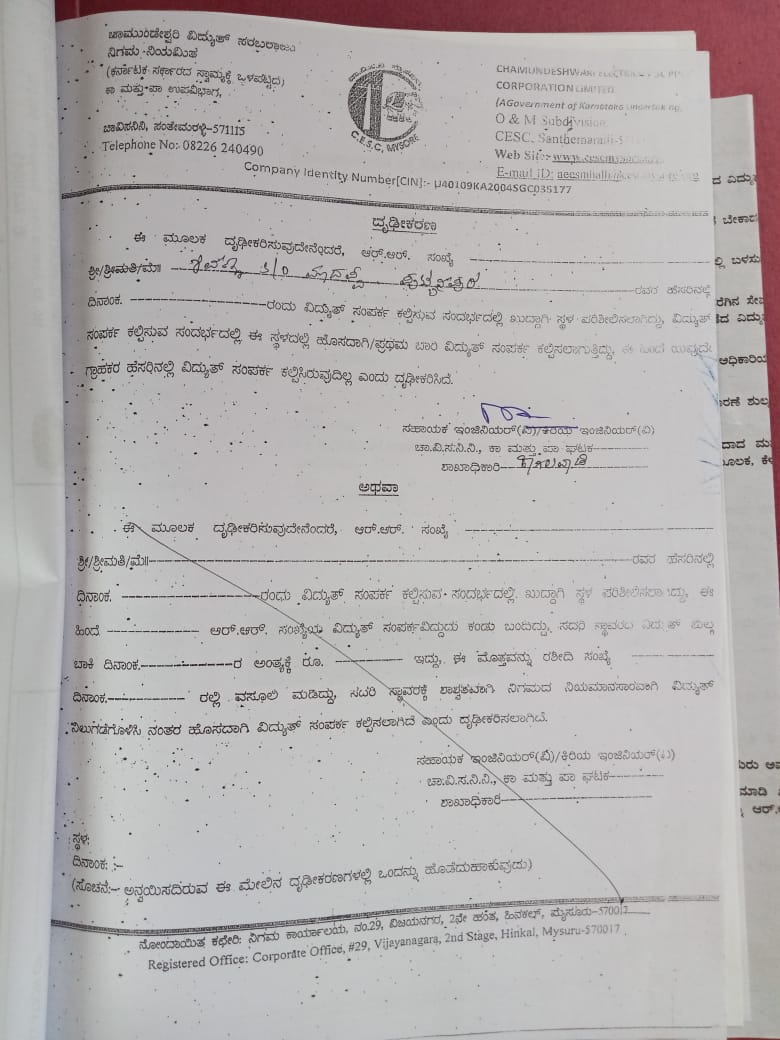 ಚಾಮುಂಡೇಶ್ವರಿ ವಿದ್ಯುತ್ ಸರಬರಾಜು
ನಿಗಮ ನಿಯಮಿತ
(ಕರ್ನಾಟಕ ಸರ್ಕಾರದ ಸ್ವಾಮ್ಯಕ್ಕೆ ಒಳಪಟ್ಟಿದೆ)
ಕಾ ಮತ್ತು ಪಾ ಉಪವಿಭಾಗ,
ಚಾವಿಸನಿನಿ, ಸಂತೇಮರಳ್ಳಿ-571115
Telephone No: 08226 240490
C.E.S.C, MYSORE
CHAMUNDESHWARI
CORPORATION LIMITED
(AGovernment of Karnataka
O & M Subdivision
CESC, Santhemaralli-5
Web Site:-
E-mail ID:
Company Identity Number[CIN]:- U40109KA2004SGC035177
ದೃಢೀಕರಣ
ಈ ಮೂಲಕ ದೃಢೀಕರಿಸುವುದೇನೆಂದರೆ, ಆರ್.ಆರ್. ಸಂಖ್ಯೆ
ಶ್ರೀ/ಶ್ರೀಮತಿ/ಮೆ॥ ರವರ ಹೆಸರಿನಲ್ಲಿ
ದಿನಾಂಕ. ರಂದು ವಿದ್ಯುತ್ ಸಂಪರ್ಕ ಕಲ್ಪಿಸುವ ಸಂದರ್ಭದಲ್ಲಿ ಖುದ್ದಾಗಿ ಸ್ಥಳ ಪರಿಶೀಲಿಸಲಾಗಿದ್ದು, ವಿದ್ಯುತ್
ಸಂಪರ್ಕ ಕಲ್ಪಿಸುವ ಸಂದರ್ಭದಲ್ಲಿ ಈ ಸ್ಥಳದಲ್ಲಿ ಹೊಸದಾಗಿ/ಪ್ರಥಮ ಬಾರಿ ವಿದ್ಯುತ್ ಸಂಪರ್ಕ ಕಲ್ಪಿಸಲಾಗುತ್ತಿದ್ದು, ಈ ಹಿಂದೆ ಯಾವುದೇ
ಗ್ರಾಹಕರ ಹೆಸರಿನಲ್ಲಿ ವಿದ್ಯುತ್ ಸಂಪರ್ಕ ಕಲ್ಪಿಸಿರುವುದಿಲ್ಲ ಎಂದು ದೃಢೀಕರಿಸಿದೆ.
ಸಹಾಯಕ ಇಂಜಿನಿಯರ್(ವಿ)/ಕಿರಿಯ ಇಂಜಿನಿಯರ್(ವಿ)
ಚಾ.ವಿ.ಸ.ನಿ.ನಿ., ಕಾ ಮತ್ತು ಪಾ ಘಟಕ
ಶಾಖಾಧಿಕಾರಿ
ಅಥವಾ
ಈ ಮೂಲಕ ದೃಢೀಕರಿಸುವುದೇನೆಂದರೆ, ಆರ್.ಆರ್. ಸಂಖ್ಯೆ
ಶ್ರೀ/ಶ್ರೀಮತಿ/ಮೆ॥ ರವರ ಹೆಸರಿನಲ್ಲಿ
ದಿನಾಂಕ. ರಂದು ವಿದ್ಯುತ್ ಸಂಪರ್ಕ ಕಲ್ಪಿಸುವ ಸಂದರ್ಭದಲ್ಲಿ ಖುದ್ದಾಗಿ ಸ್ಥಳ ಪರಿಶೀಲಿಸಲಾಗಿದ್ದು, ಈ
ಹಿಂದೆ ಆರ್.ಆರ್. ಸಂಖ್ಯೆಯ ವಿದ್ಯುತ್ ಸಂಪರ್ಕವಿದ್ದುದು ಕಂಡು ಬಂದಿದ್ದು, ಸದರಿ ಸ್ಥಾವರದ ವಿದ್ಯುತ್ ಶುಲ್ಕ
ಬಾಕಿ ದಿನಾಂಕ. ರ ಅಂತ್ಯಕ್ಕೆ ರೂ. ಇದ್ದು, ಈ ಮೊತ್ತವನ್ನು ರಶೀದಿ ಸಂಖ್ಯೆ
ದಿನಾಂಕ. ರಲ್ಲಿ ವಸೂಲಿ ಮಾಡಿದ್ದು, ಸದರಿ ಸ್ಥಾವರಕ್ಕೆ ಶಾಶ್ವತವಾಗಿ ನಿಗಮದ ನಿಯಮಾನುಸಾರವಾಗಿ ವಿದ್ಯುತ್
ನಿಲುಗಡೆಗೊಳಿಸಿ ನಂತರ ಹೊಸದಾಗಿ ವಿದ್ಯುತ್ ಸಂಪರ್ಕ ಕಲ್ಪಿಸಲಾಗಿದೆ ಎಂದು ದೃಢೀಕರಿಸಲಾಗಿದೆ.
ಸಹಾಯಕ ಇಂಜಿನಿಯರ್(ವಿ)/ಕಿರಿಯ ಇಂಜಿನಿಯರ್(ವಿ)
ಚಾ.ವಿ.ಸ.ನಿ.ನಿ., ಕಾ ಮತ್ತು ಪಾ ಘಟಕ
ಶಾಖಾಧಿಕಾರಿ
ಸ್ಥಳ:
ದಿನಾಂಕ: :-
(ಸೂಚನೆ:- ಅನ್ವಯಿಸದಿರುವ ಈ ಮೇಲಿನ ದೃಢೀಕರಣಗಳಲ್ಲಿ ಒಂದನ್ನು ಹೊಡೆದುಹಾಕುವುದು)
ನೋಂದಾಯಿತ ಕಛೇರಿ: ನಿಗಮ ಕಾರ್ಯಾಲಯ, ನಂ.29, ವಿಜಯನಗರ, 2ನೇ ಹಂತ, ಹಿನಕಲ್, ಮೈಸೂರು-570017
Registered Office: Corporate Office, #29, Vijayanagara, 2nd Stage, Hinkal, Mysuru-570017